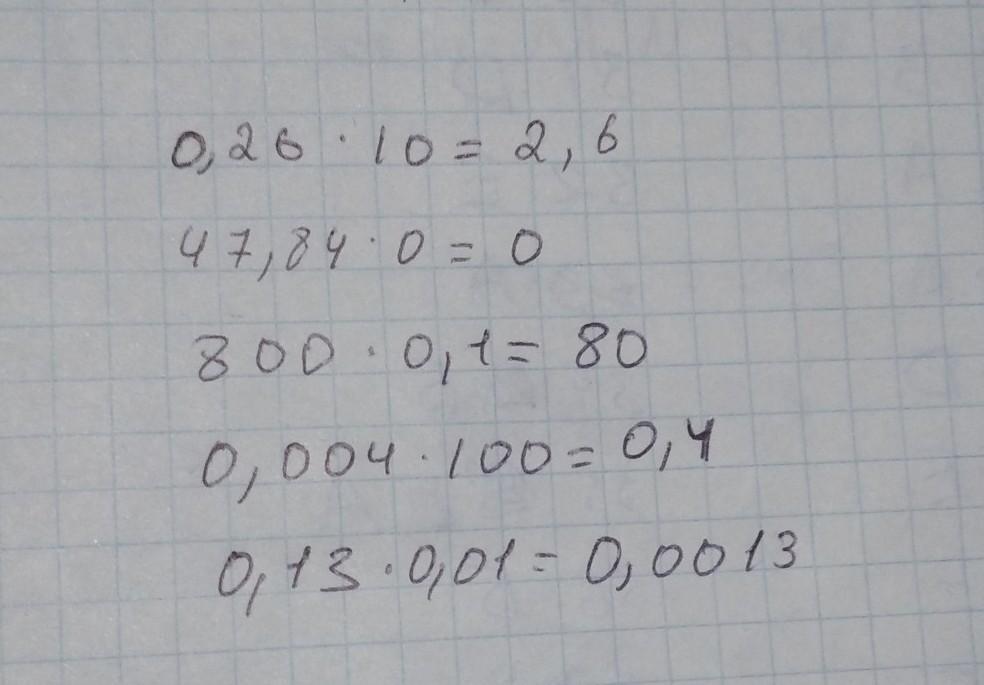 0,26 · 10 = 2,6
47,84 · 0 = 0
800 · 0,1 = 80
0,004 · 100 = 0,4
0,13 · 0,01 = 0,0013